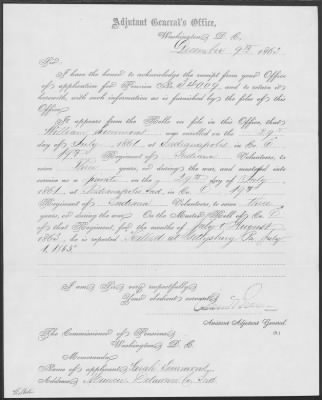 Adjutant General's Office,
Washington D. C.
December 9th 1863
Sir:
I have the honor to acknowledge the receipt from your Office
of application for Pension No. 34009, and to return it
herewith, with such information as is furnished by the files of this
Office.
It appears from the Rolls on file in this Office, that
William was enrolled on the 29th
day of July 1861 at Indianapolis in Co.
19th Regiment of Indiana Volunteers, to
serve Three years, or during the war, and mustered into
service as a private on the 29th day of July
1861, at Indianapolis Ind, in Co. 19th
Regiment of Indiana Volunteers, to serve three
years, or during the war. On the Muster Roll of Co.
of that Regiment, for the months of July & August
1863, he is reported Killed at Gettysburg Pa July
1, 1863
I am Sir, very respectfully
Your obedient servant,
Assistant Adjutant General.
The Commissioner of Pensions
Washington, D. C.
Memoranda
Name of applicant, Sarah
Address Muncie Delaware Co Ind